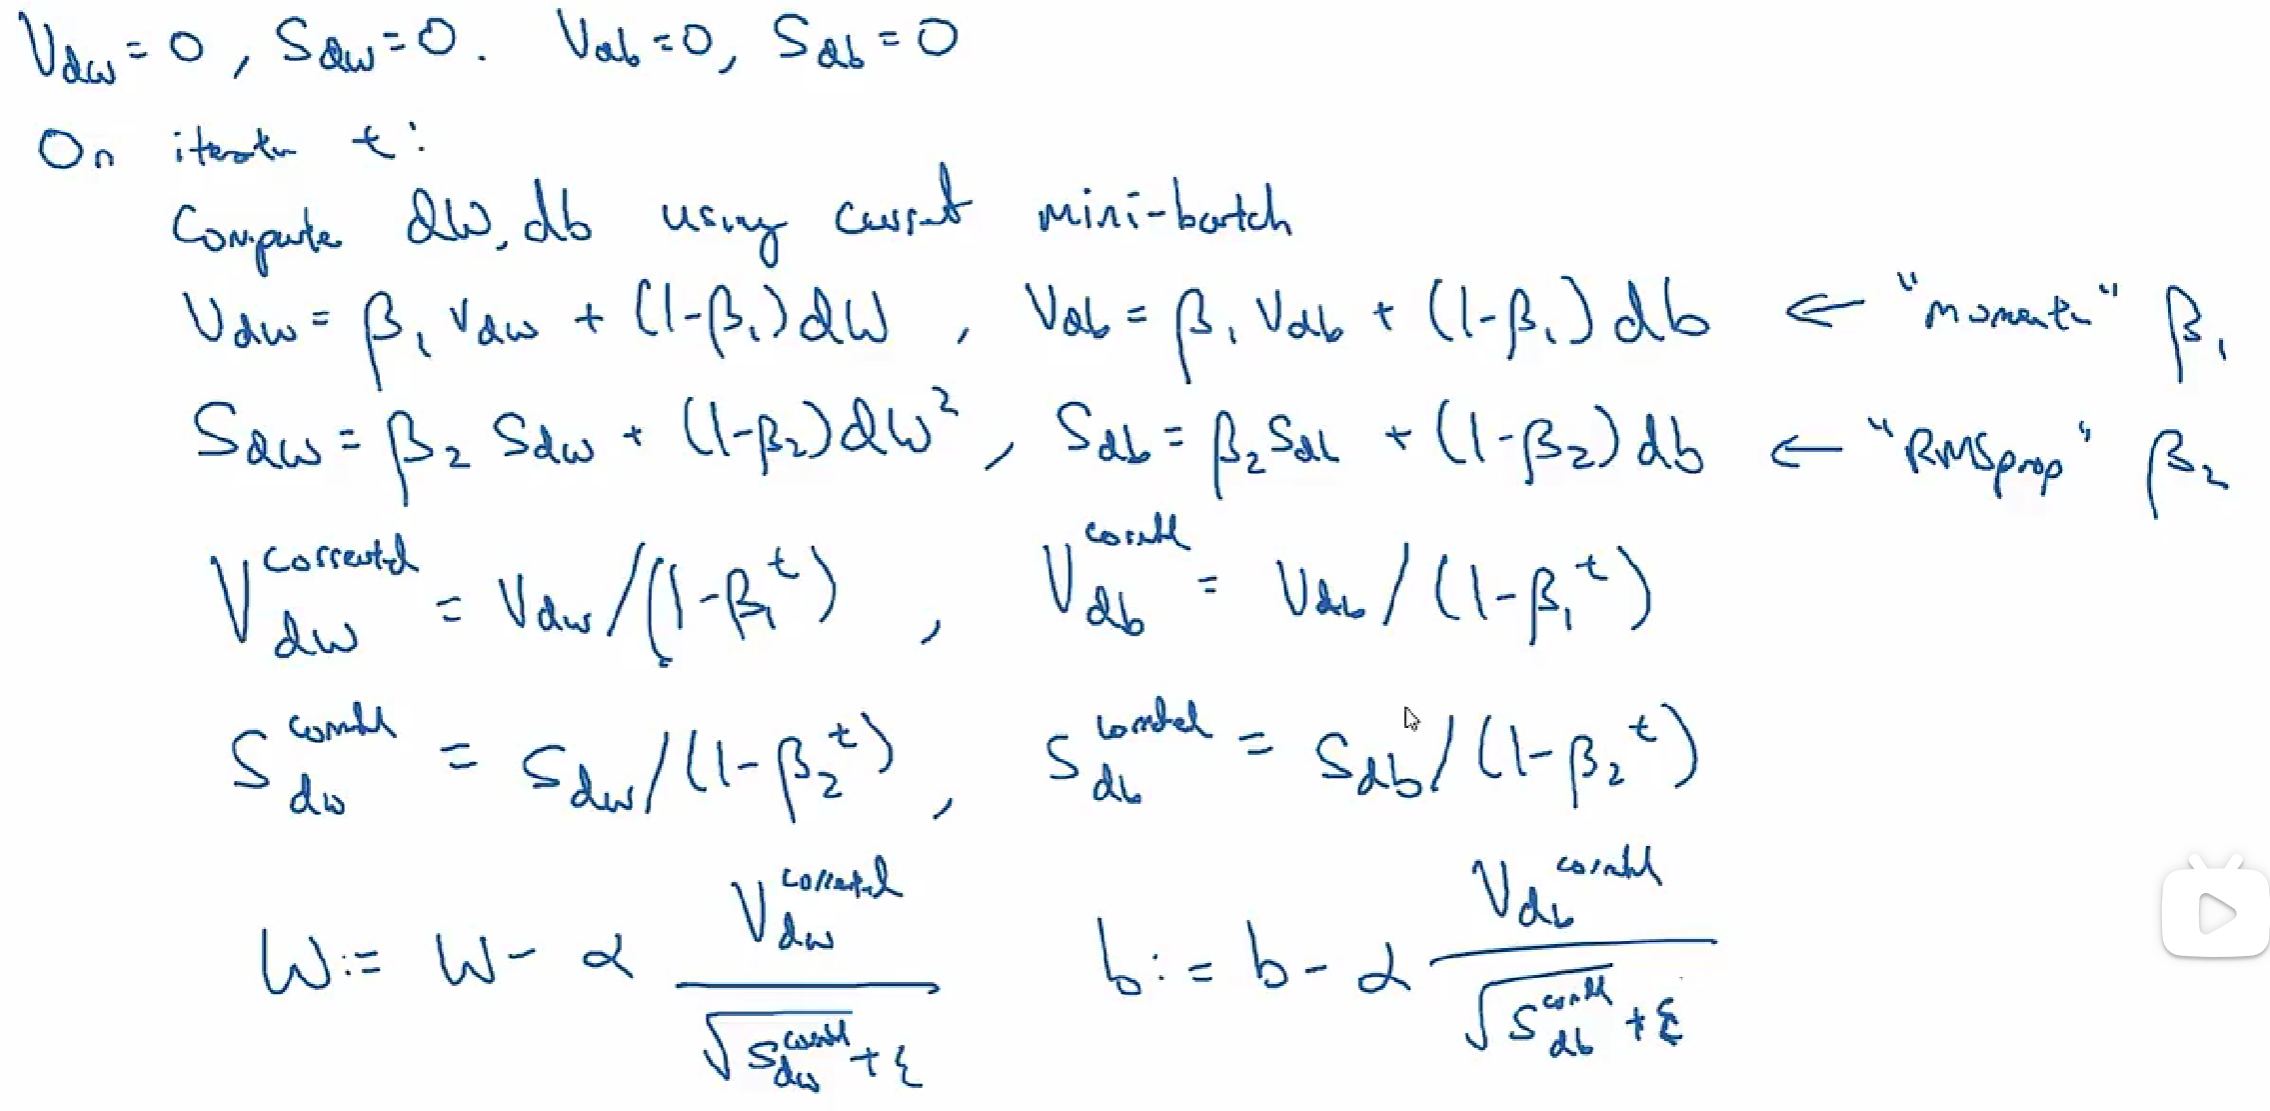 V_dw = 0, S_dw = 0. V_db = 0, S_db = 0
On iteratn t:
Compute dW, db using current mini-batch
V_dw = β₁ V_dw + (1-β₁) dW, V_db = β₁ V_db + (1-β₁) db ← "moment" β₁
S_dw = β₂ S_dw + (1-β₂) dW², S_db = β₂ S_db + (1-β₂) db ← "RMSprop" β₂
V_dw^corrected = V_dw/(1-β₁^t), V_db^corrected = V_db/(1-β₁^t)
S_dw^corrected = S_dw/(1-β₂^t), S_db^corrected = S_db/(1-β₂^t)
W := W - α V_dw^corrected / (√S_dw^corrected + ε) b := b - α V_db^corrected / (√S_db^corrected + ε)